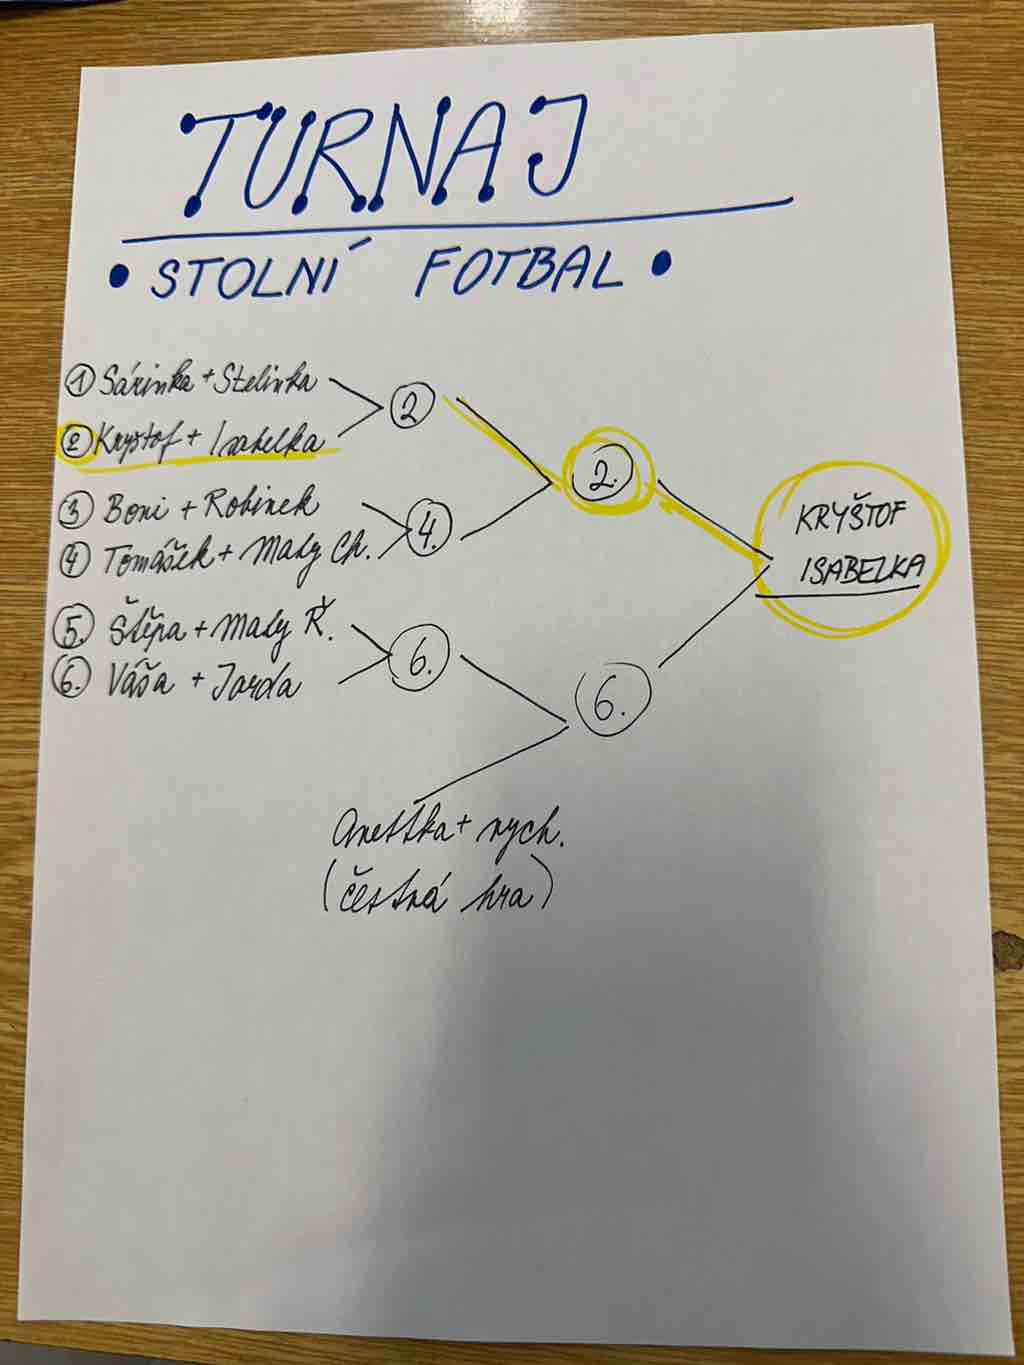 TURNAJ
• STOLNÍ FOTBAL •
1 Sárinka + Stelinka
2 Kryštof + Isabelka
3 Boni + Robinek
4 Tomášek + Maty Ch.
5. Štěpa + Maty Ř.
6. Váša + Jarda
2
4.
6.
2.
6.
KRYŠTOF
ISABELKA
Anettka + vych.
(čestná hra)